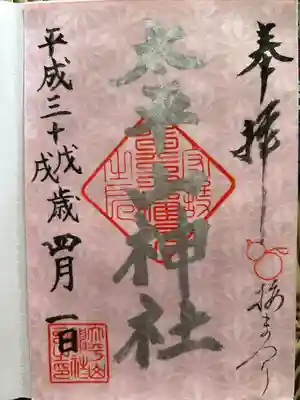 奉拝
桜まつり
太平山神社
平成三十戊戌歳四月一日